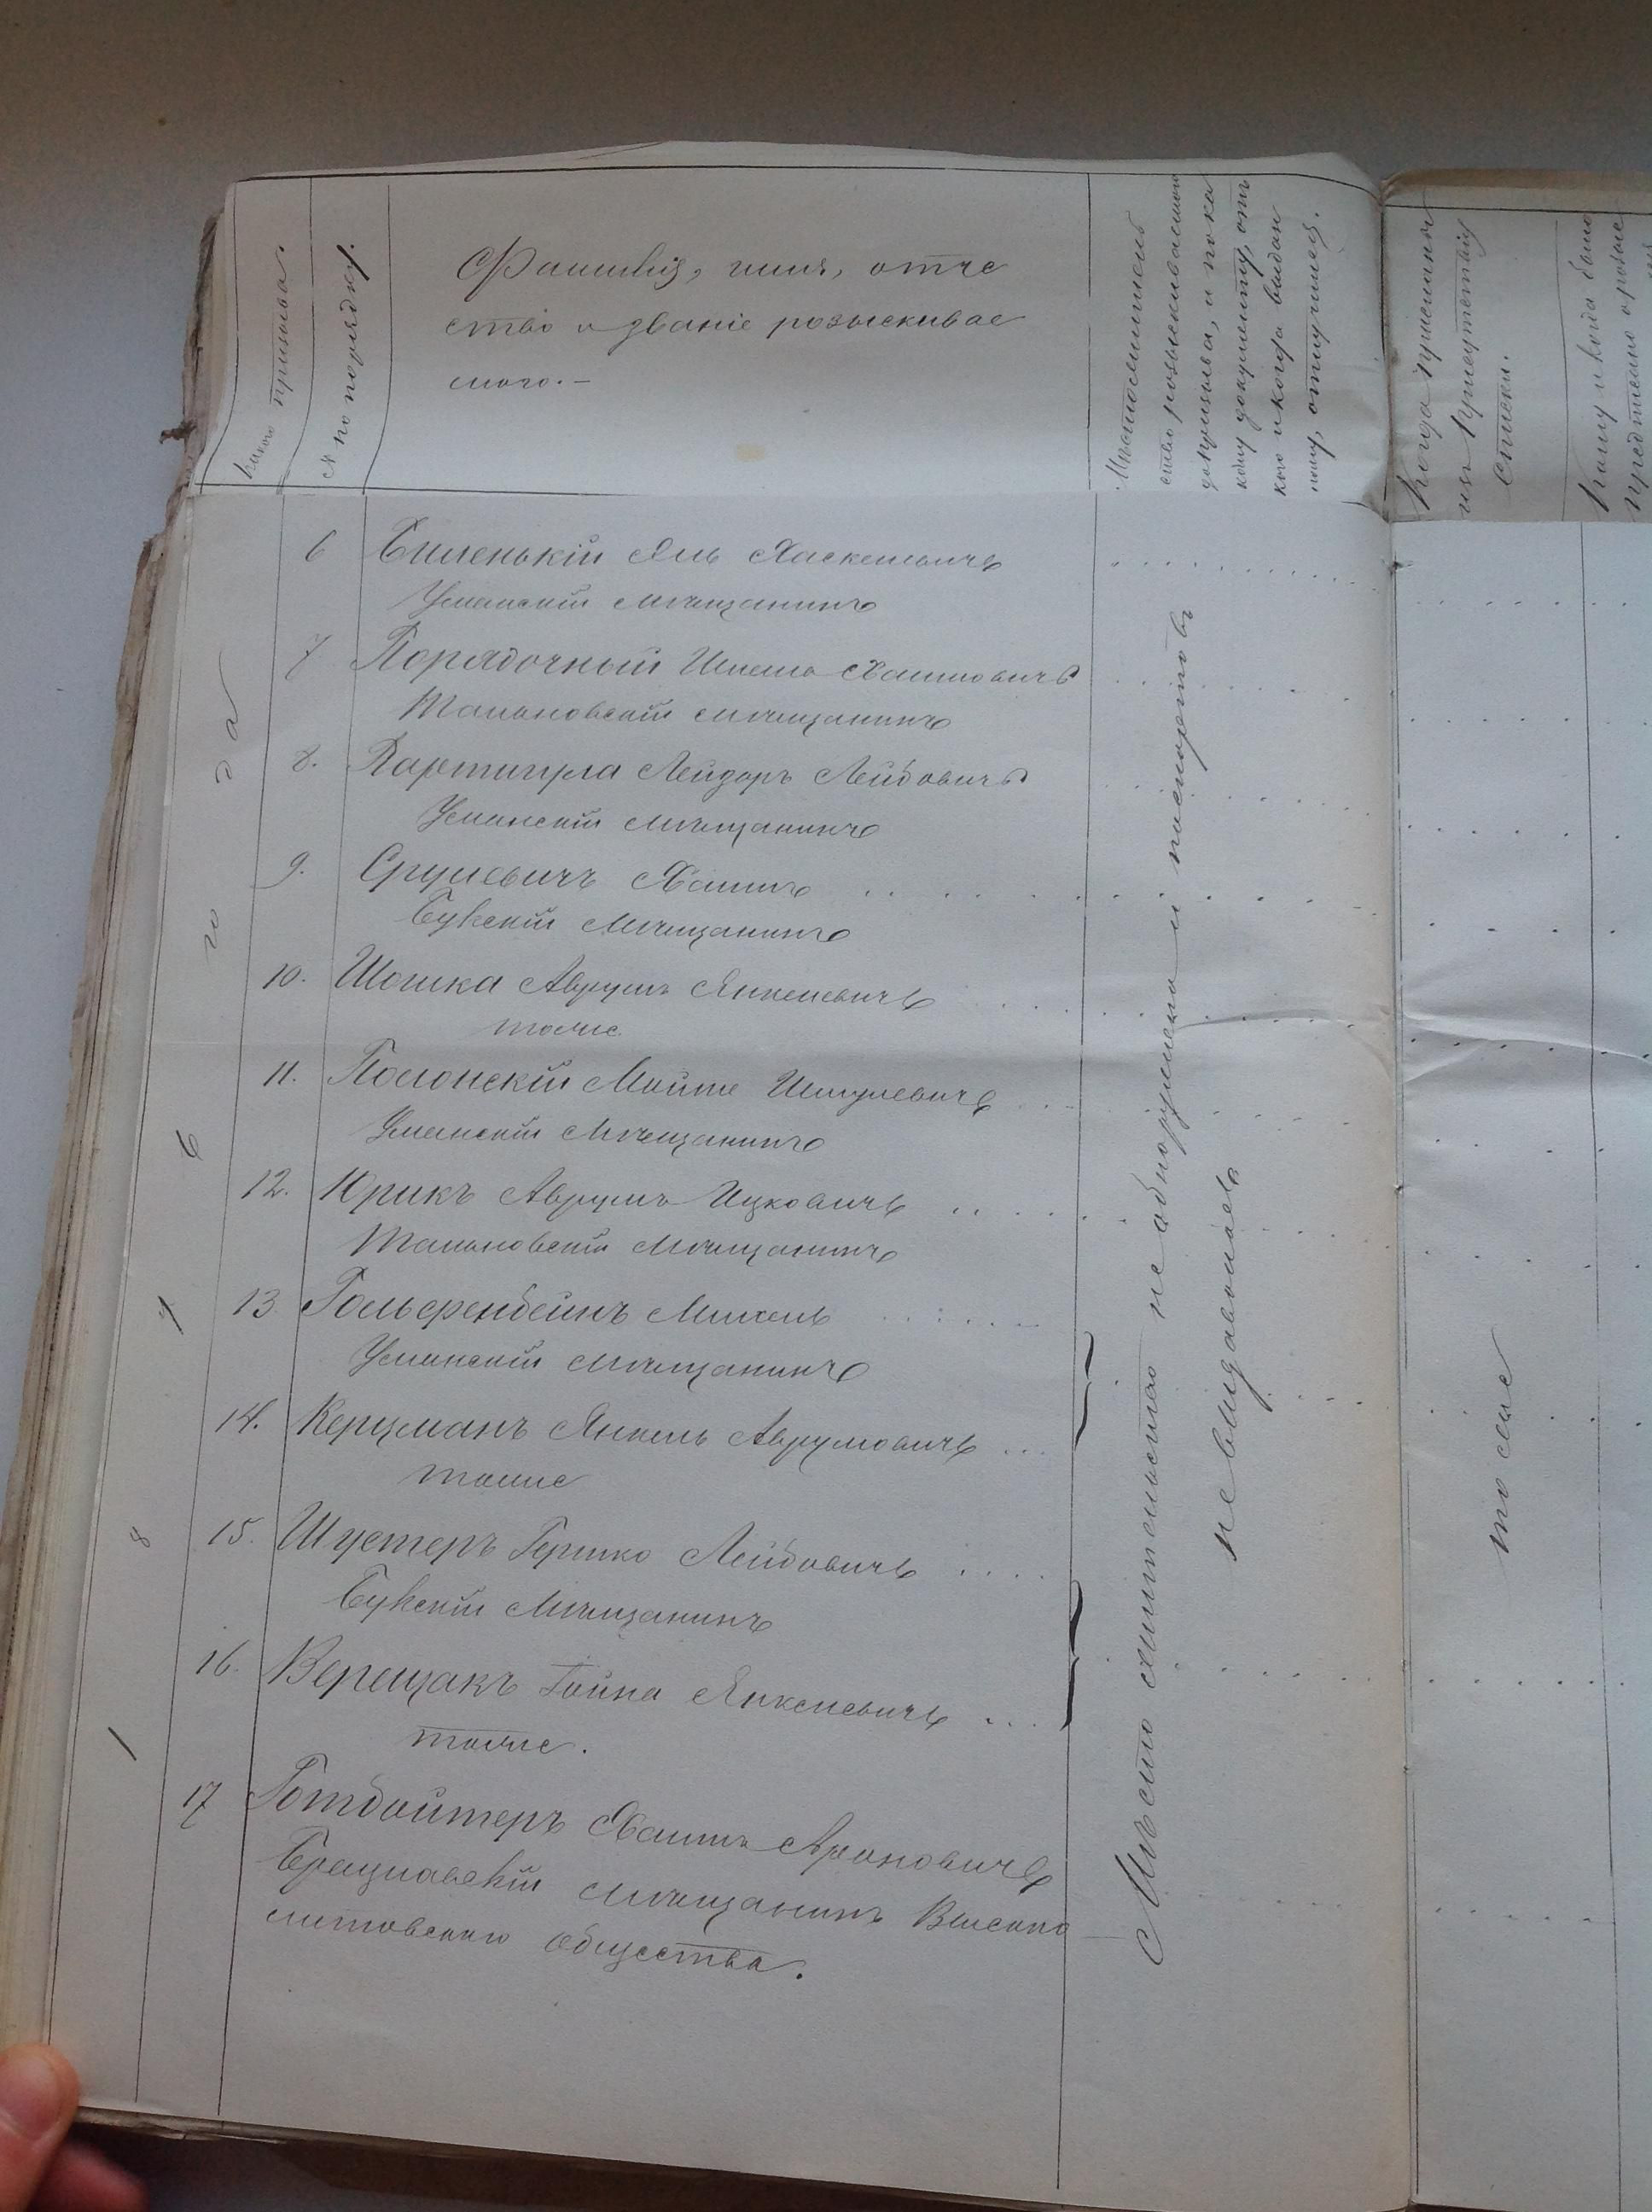 какого призыва.
№ по порядку.
Фамилія, имя, отче
ство и званіе розыскивае
маго.—
Мѣстожительство
до призыва, и по ка
кому документу, отъ
кого и когда выдан
ному, отлучился.
Когда присланы
изъ Присутствія
списки.
Кому и когда было
предписано
6 Биленькій Яль Хаскелевичъ
Уманскій мѣщанинъ
7 Порядочный Шлема Хаимовичъ
Тальновскій мѣщанинъ
8. Партигула Лейзоръ Лейбовичъ
Уманскій мѣщанинъ
9. Срулевичъ Хаимъ
Букскій мѣщанинъ
10. Шошка Аврумъ Янкелевичъ
тоже
11. Полонскій Мойше Шмулевичъ
Уманскій мѣщанинъ
12. Юрикъ Аврумъ Ицковичъ
Тальновскій мѣщанинъ
13. Гольфенбейнъ Михель
Уманскій мѣщанинъ
14. Керцманъ Янкель Аврумовичъ
тоже
15. Шустеръ Гершко Лейбовичъ
Букскій мѣщанинъ
16. Верещакъ Іойна Янкелевичъ
тоже.
17 Готбойтеръ Хаимъ Ароновичъ
Брацлавскій мѣщанинъ Высоко
литовскаго общества.
1 8 7 6 го да
Мѣсто жительство не обнаружено и паспортовъ
не выдавалось
то же